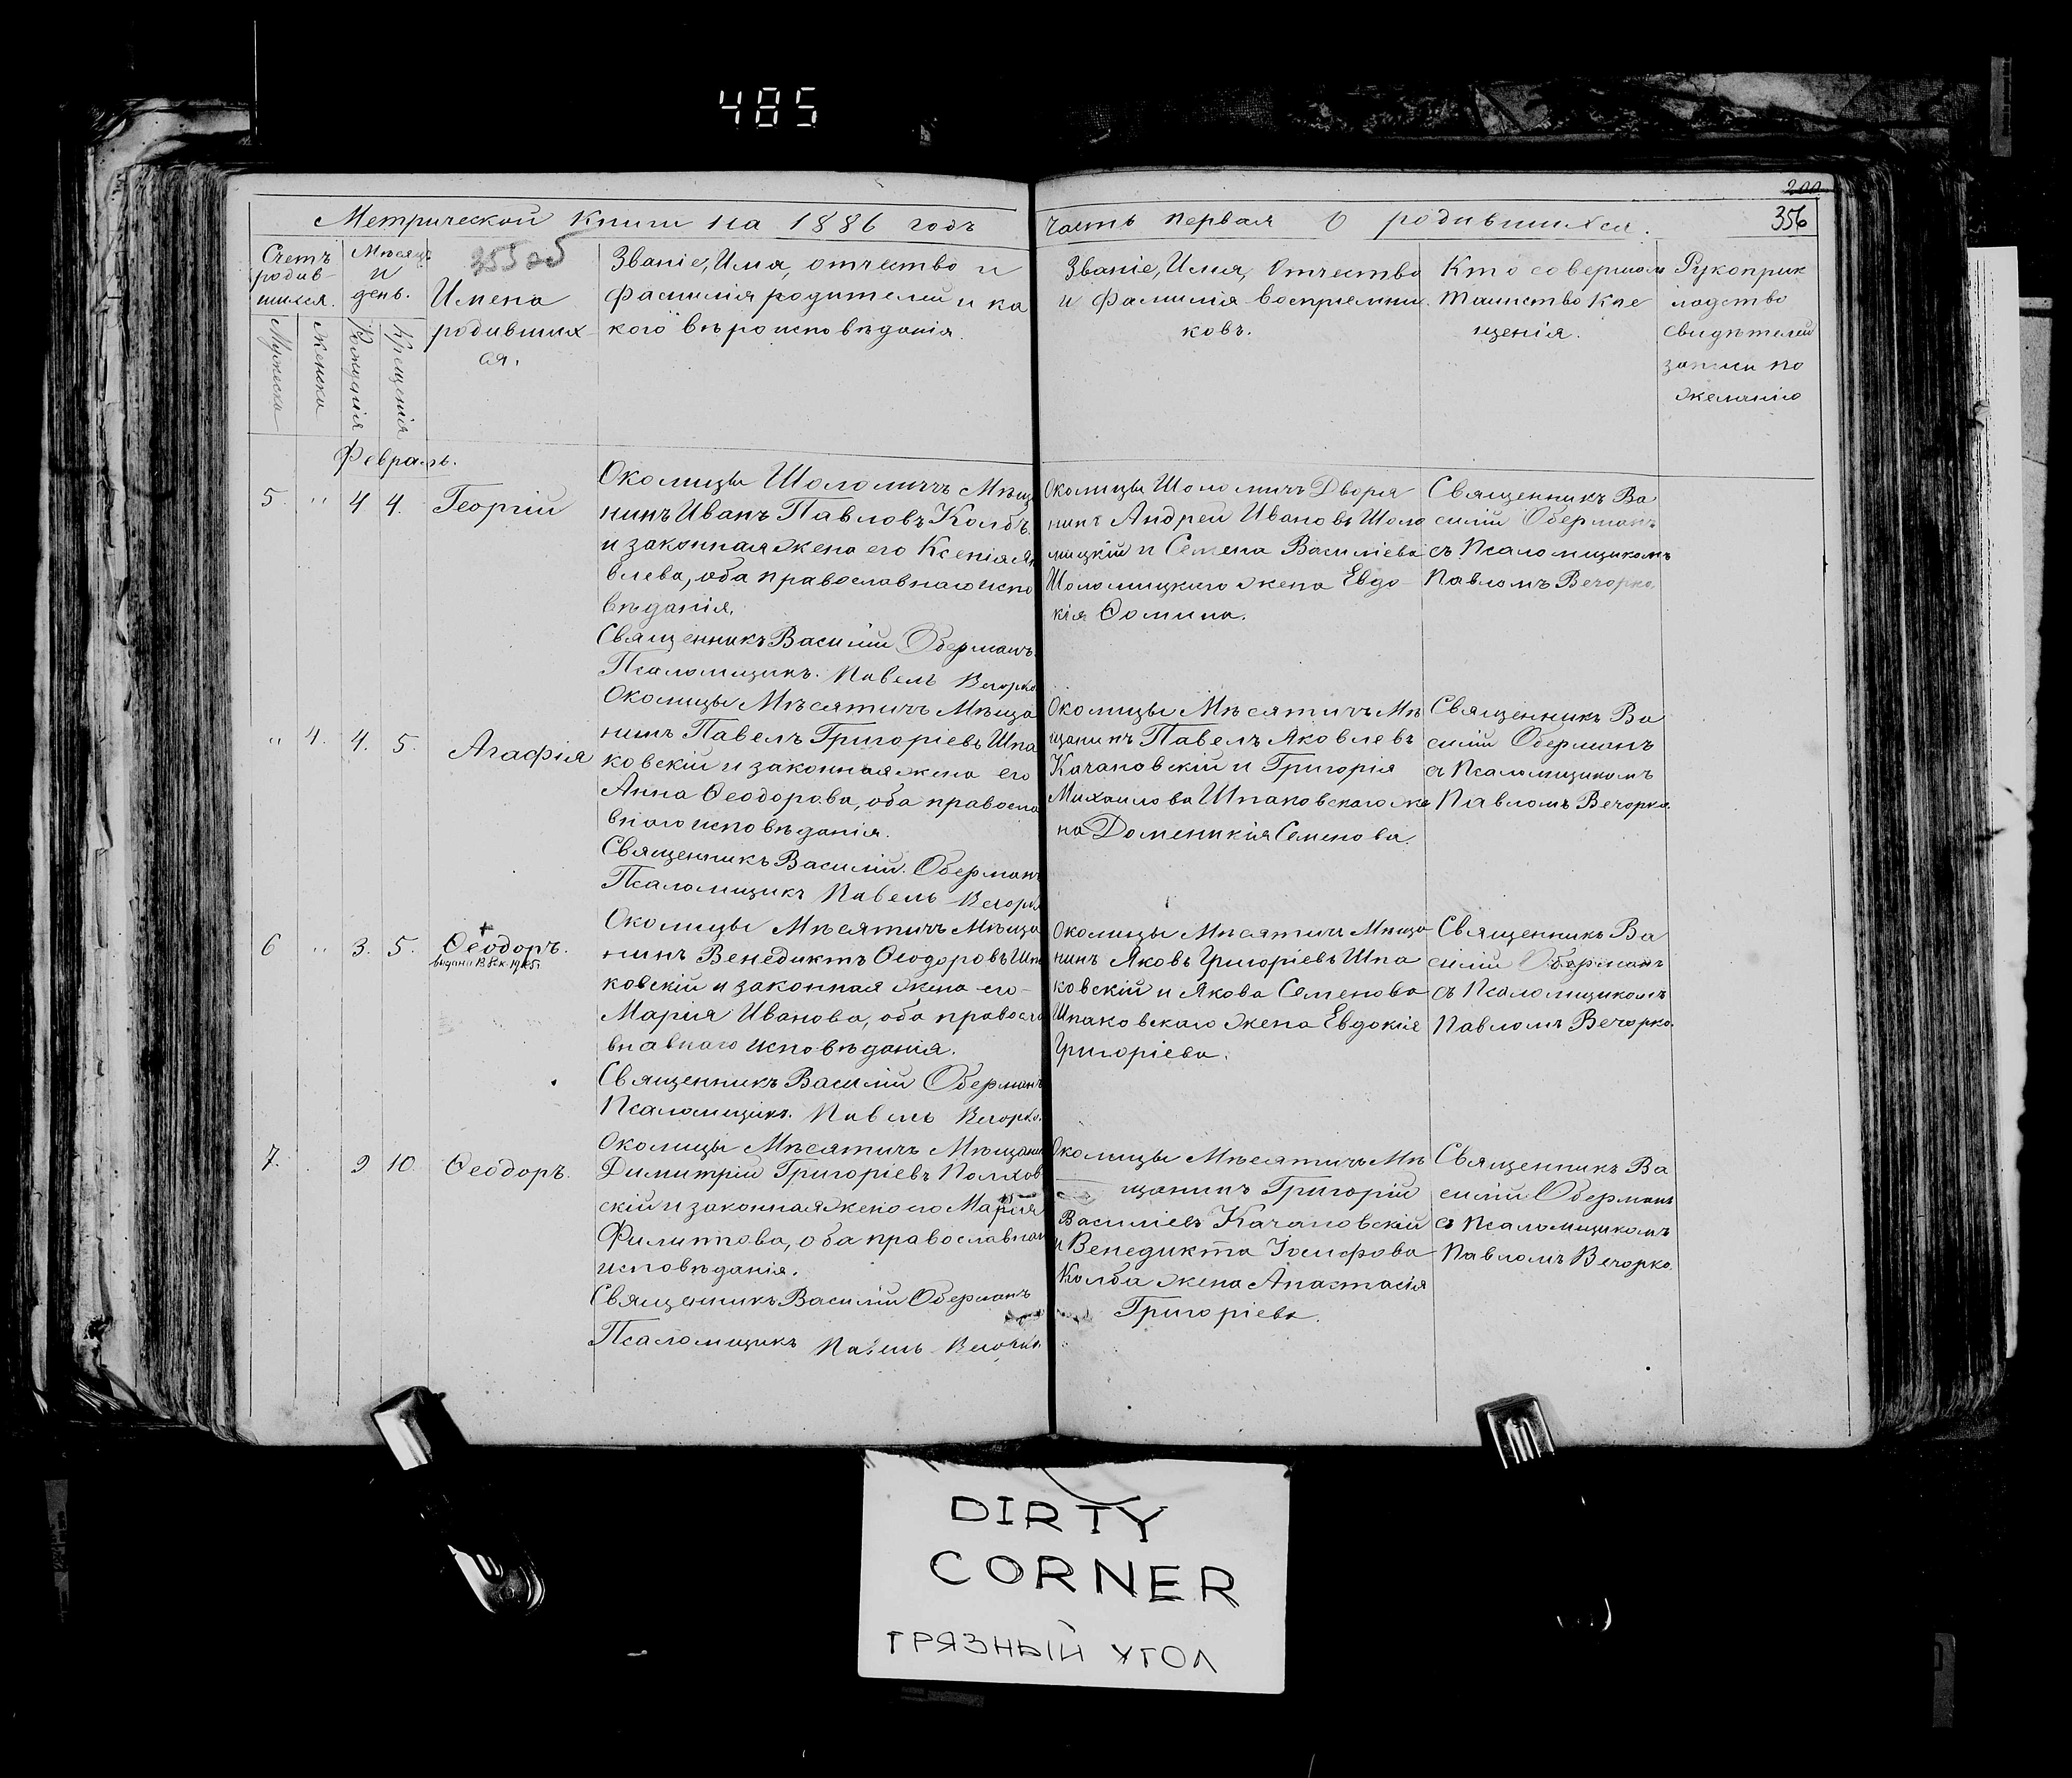 485
200
Метрической Книги на 1886 годъ
часть первая О родившихся.
356
355 об
Счетъ родив-шихся.
Мужеска
Женска
Мѣсяцъ и день.
Рожденія
Крещенія
Имена
родивших
ся.
Званіе, Имя, отчество и
фамилія родителей и ка
кого вѣроисповѣданія.
Званіе, Имя, Отчество
и Фамилія воспріемни
ковъ.
Кто совершал
таинство Кре
щенія.
Рукоприк
ладство
свидѣтелей
записи по
желанію
Февраль.
5. " 4 4. Георгій
Околицы Шоломичъ Мѣщ
нинъ Иванъ Павловъ Колбъ
и законная жена его Ксенія Як
влева, оба православнаго испо
вѣданія.
Священникъ Василій Оберманъ.
Псаломщикъ. Павелъ Вечорко
Околицы Шоломичъ Дворя
нинъ Андрей Ивановъ Шоло
мицкій и Семена Василіева
Шоломицкаго жена Евдо-
кія Ѳомина.
Священникъ Ва
силій Оберманъ
съ Псаломщикомъ
Павломъ Вечорко.
" 4. 4. 5. Агафія
Околицы Мѣсятичъ Мѣща
нинъ Павелъ Григоріевъ Шпа
ковскій и законная жена его
Анна Ѳеодорова, оба правосла
внаго исповѣданія.
Священникъ Василій Оберманъ
Псаломщикъ Павелъ Вечорк
Околицы Мѣсятичъ Мѣ
щанинъ Павелъ Яковлевъ
Качановскій и Григорія
Михаилова Шпаковскаго же
на Доменикія Семенова.
Священникъ Ва
силій Оберманъ
съ Псаломщикомъ
Павломъ Вечорко.
6 " 3. 5. Ѳеодоръ.
Околицы Мѣсятичъ Мѣща
нинъ Венедиктъ Ѳеодоровъ Шпа
ковскій и законная жена его
Мария Иванова, оба правосла
внавнаго исповѣданія.
Священникъ Василій Оберманъ
Псаломщикъ. Павелъ Вечорко.
Околицы Мѣсятичъ Мѣща
нинъ Яковъ Григоріевъ Шпа
ковскій и Якова Семенова
Шпаковскаго жена Евдокія
Григоріева.
Священникъ Ва
силій Оберманъ
съ Псаломщикомъ
Павломъ Вечорко.
7. 9 10. Ѳеодоръ.
Околицы Мѣсятичъ Мѣщани
Димитрій Григоріевъ Полхов
скій и законная жена его Марія
Филиппова, оба православнаг
исповѣданія.
Священникъ Василій Оберманъ
Псаломщикъ Павелъ Вечорко
Околицы Мѣсятичъ Мѣ
щанинъ Григорій
Василіевъ Качановскій
и Венедикта Іосифова
Колба жена Анастасія
Григоріева.
Священникъ Ва
силій Оберманъ
съ Псаломщикомъ
Павломъ Вечорко.
DIRTY
CORNER
ГРЯЗНЫЙ УГОЛ